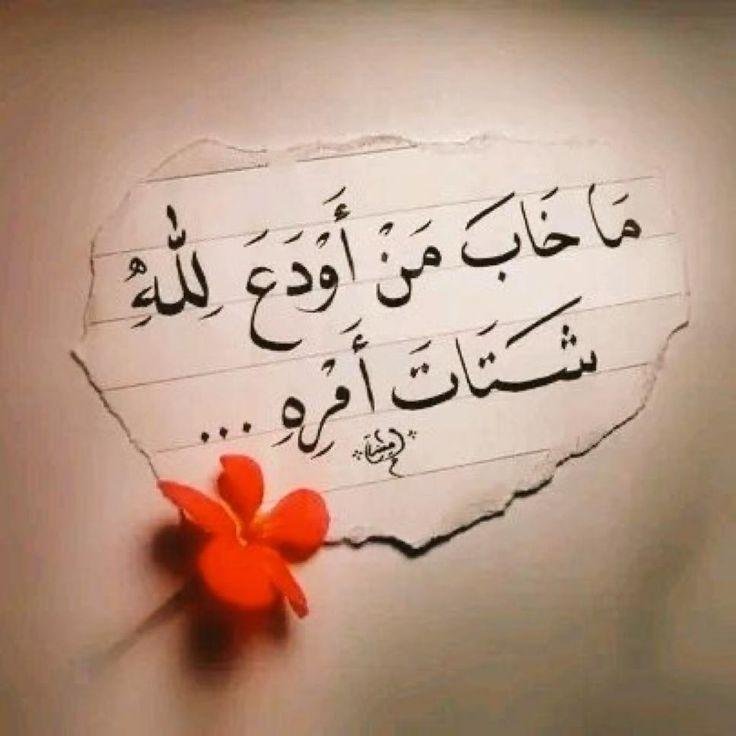 مَا خَابَ مَنْ أَوْدَعَ لِلّٰهِ
شَتَاتَ أَمْرِهِ ...